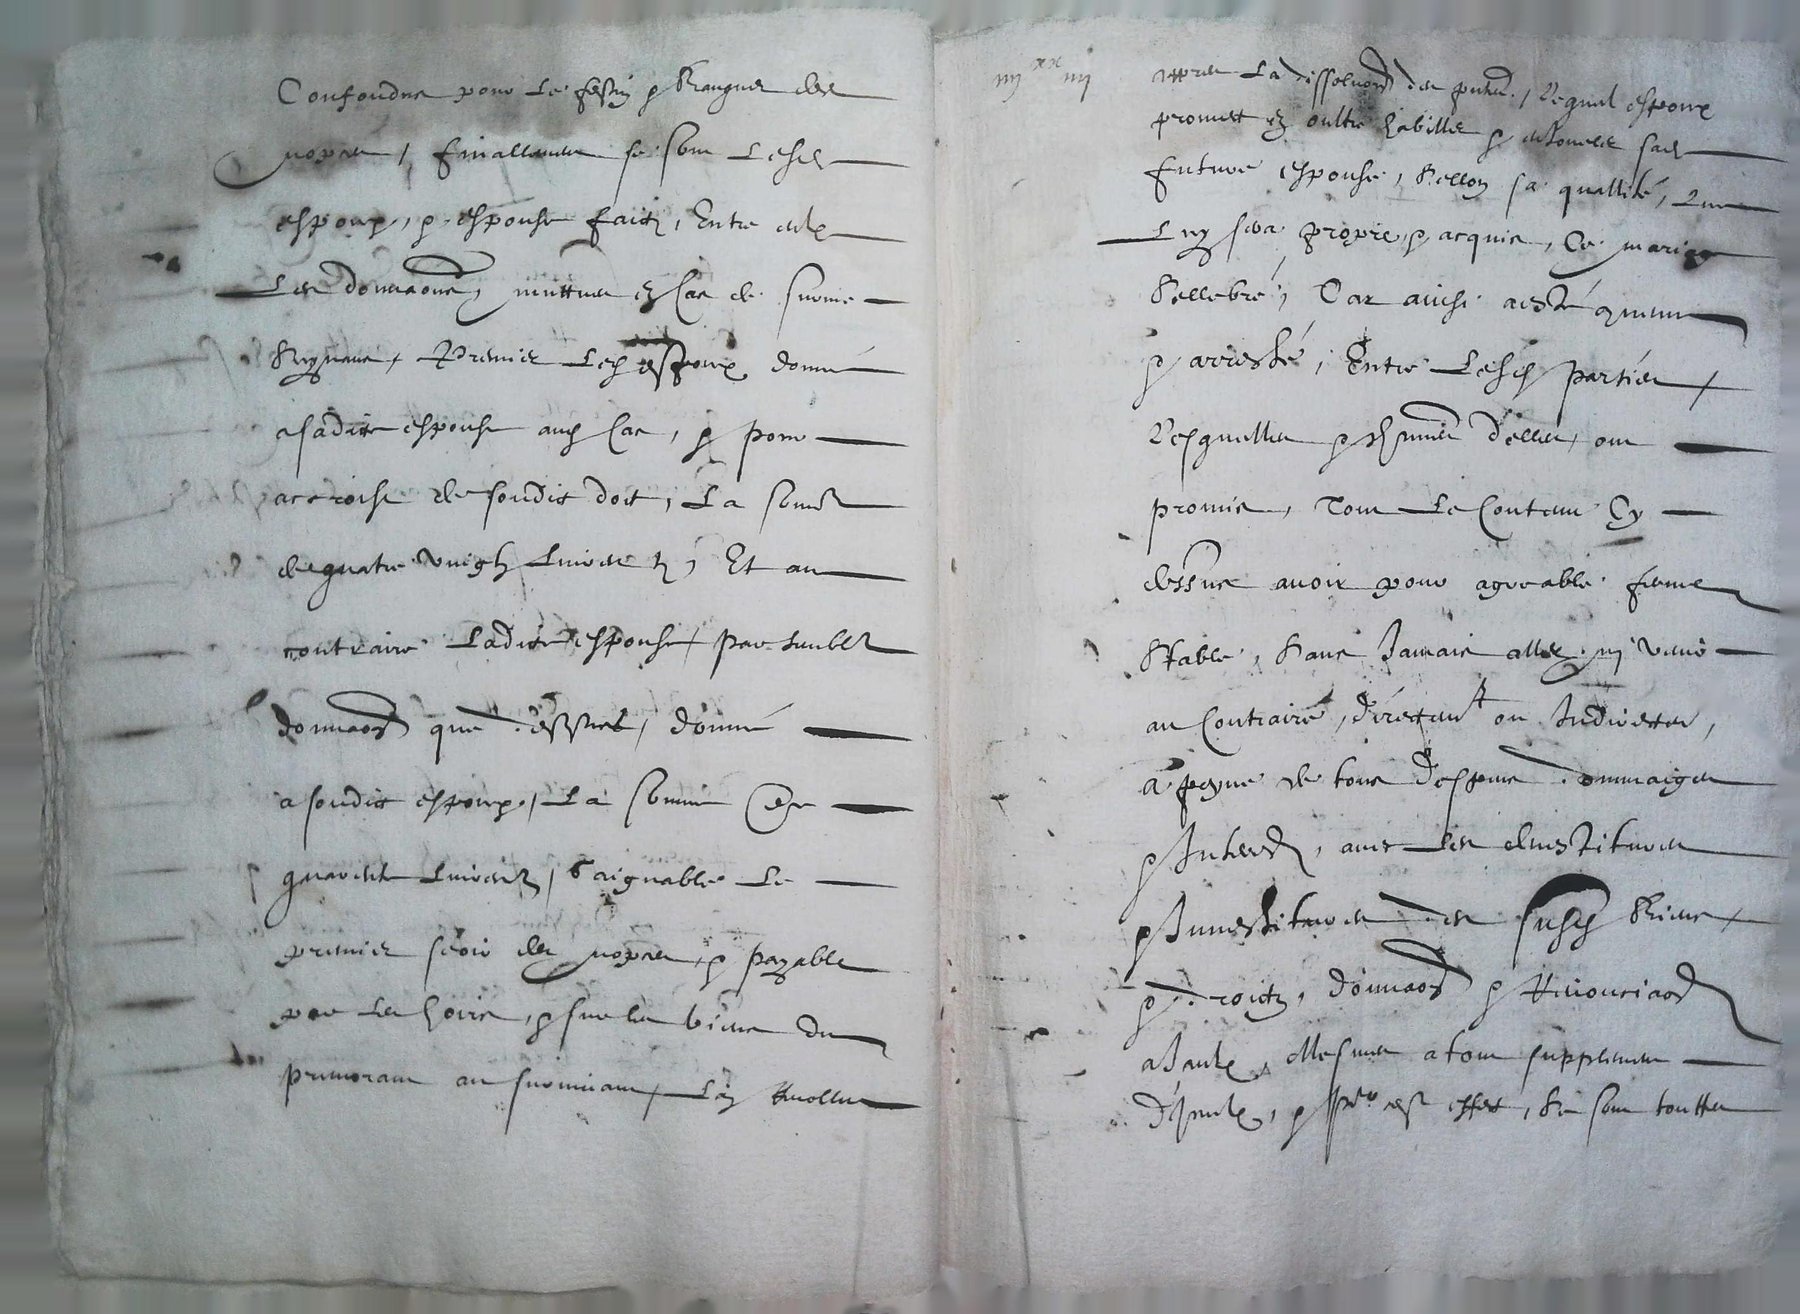 Confondue pour le festin & banquet des
nopces / finallement se sont lesd
espoux, & espouse faictz, Entre eulx
Les donnaons, muttues en cas de survie
premier lesd espoux donne
a sadite espouse aud cas, & pour
accroist de sondit dot, La somme
de quatre vingh livres tz, Et au
contraire ladite espouse, par semble
donnaon que dessus, donne
a sondit espoux, La somme de
quarente livres tz, gaignable le
premier seoir des nopces, & payable
par les hoirs, & sur les biens du
premorant au survivant,
iiij xx iiij
appres la dissoluon des Lequel espoux
promet en oultre habiller & sad
future espouse, sellon sa quallité, que
Luy sera propre, & acquis, Ce mariage
Sellebré, Car ainsi a esté
& arresté, Entre lesd parties,
Lesquelles & chune d'elles, ont
promis, Tout le contenu Cy
dessus avoir pour agreable ferme
Stable, sans Jamais aller ny venir
au contraire, directemt ou Indirectem,
a peyne de tous despens dommaiges
& Interestz, avec les
& Investitures des susd biens,
& droictz, donnaon &
a Jceulx,
d'Jceulx, & pour cest effet, se sont touttes